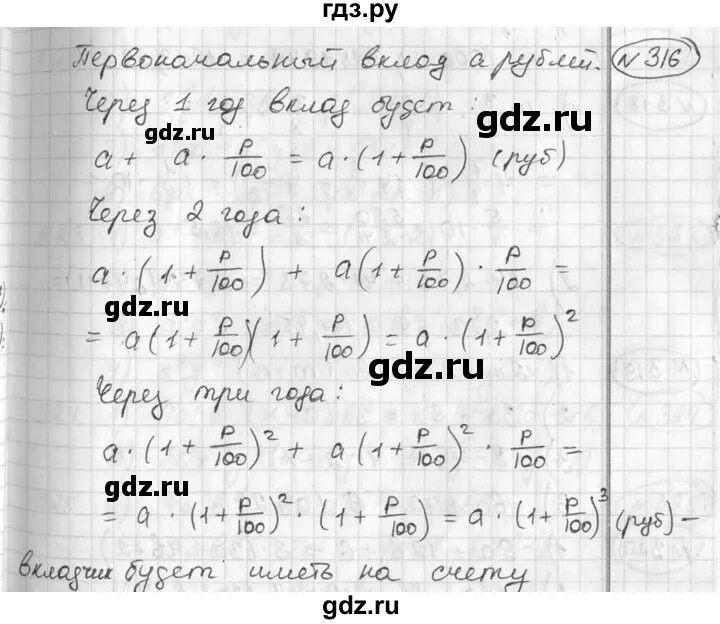 гдз.ру
Первоначальный вклад a рублей. N 316
Через 1 год вклад будет:
gdz.ru
a + a · p/100 = a · (1 + p/100) (руб)
gdz.ru
Через 2 года:
a · (1 + p/100) + a(1 + p/100) · p/100 =
gdz.ru
= a(1 + p/100)(1 + p/100) = a · (1 + p/100)²
gdz.ru
Через три года:
a · (1 + p/100)² + a(1 + p/100)² · p/100 =
gdz.ru
gdz.ru
= a · (1 + p/100)² · (1 + p/100) = a · (1 + p/100)³ (руб) –
вкладчик будет иметь на счету
gdz.ru